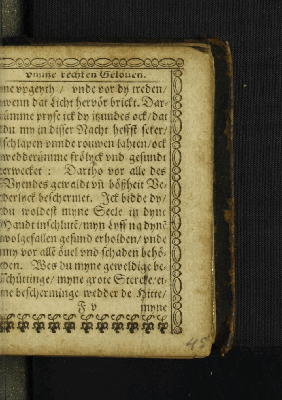 vmme rechten Gelouen.
me vpgeyth / vnde vor dy treden /
wenn dat Licht hervör brickt. Dar-
ümme pryse ick dy itzundes ock / dat
du my in disser Nacht heffst seker /
schlapen vnnde rouwen lahten / ock
wedderümme frölyck vnd gesundt
erwecket : Dartho vor alle des
Vyendes gewaldt vñ bößheit Ve-
derlyck beschermet. Ick bidde dy /
du woldest myne Seele in dyne
Handt inschlutẽ / myn Lyff na dynẽ
wolgefallen gesund erholden / vnde
my vor allẽ öuel vnd schaden behö-
den. Wes du myne geweldige be-
schüttinge / myne grote Stercke / ei-
ne bescherminge wedder de Hitte /
F v myne
45